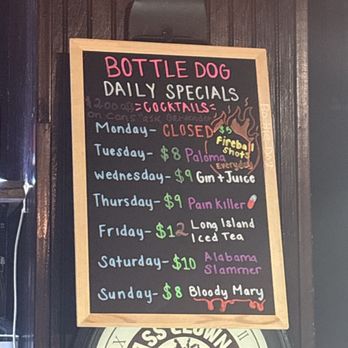 BOTTLE DOG
DAILY SPECIALS
=COCKTAILS=
$2.00 off
on cans *ask Bartender
Monday- CLOSED
$5
Fireball
Shots
Everyday
Tuesday- $8 Paloma
Wednesday- $9 Gin + Juice
Thursday- $9 Pain Killer
Friday- $12 Long Island
Iced Tea
Saturday- $10 Alabama
Slammer
Sunday- $8 Bloody Mary
ASS CLOWN